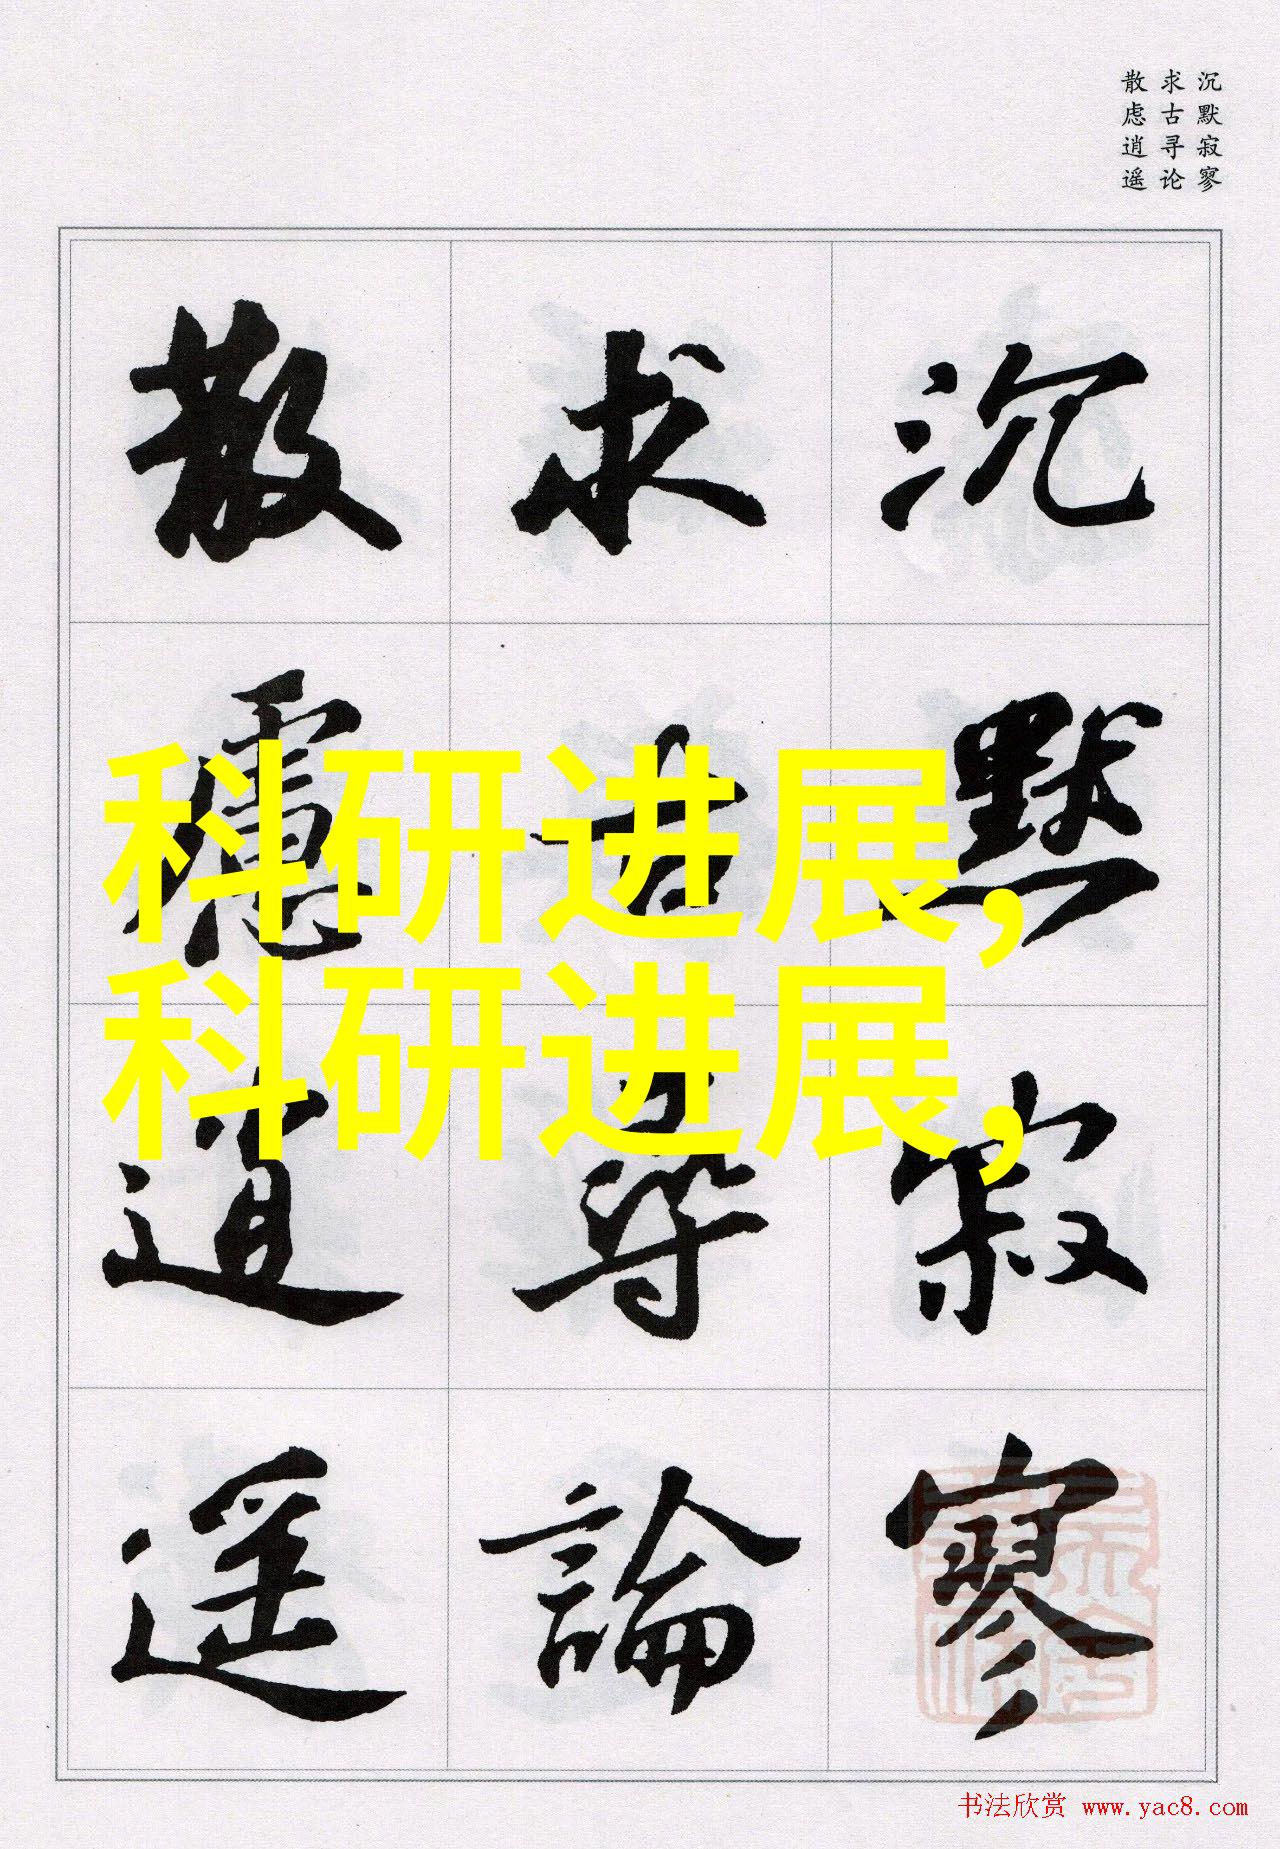 沉默寂寥
求古寻论
散虑逍遥
沉默寂寥
求古尋論
散慮逍遥
科研进展,
科研进展,
书法欣赏 www.yac8.com